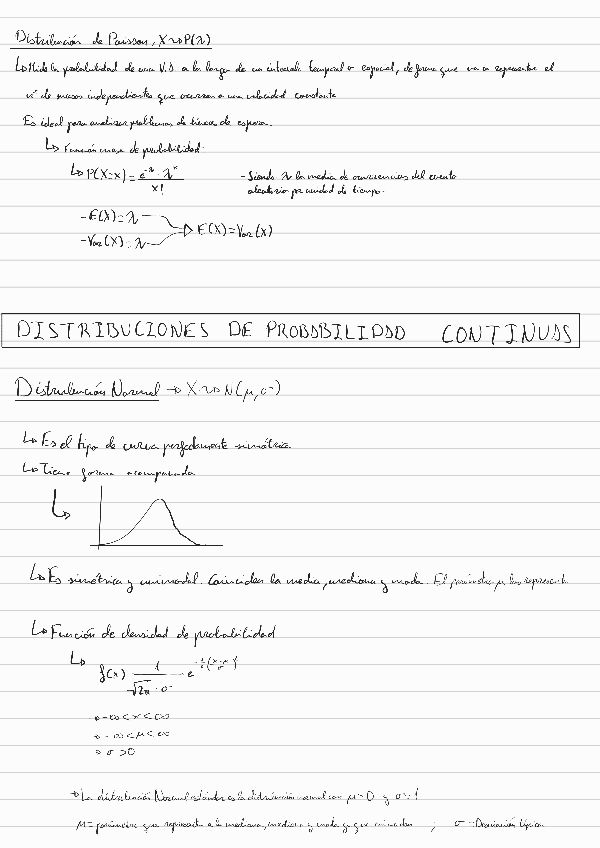 Distribución de Poisson, X~P(λ)
↳ Mide la probabilidad de una V.A. a lo largo de un intervalo temporal o espacial, de forma que va a representar el
nº de sucesos independientes que ocurren a una velocidad constante
Es ideal para analizar problemas de líneas de espera.
↳ Función masa de probabilidad:
↳ P(X=x) = e^-λ · λ^x / x!
- Siendo λ la media de ocurrencias del evento
aleatorio por unidad de tiempo.
- E(X) = λ
- Var(X) = λ
⇒ E(X) = Var(X)
DISTRIBUCIONES DE PROBABILIDAD CONTINUAS
Distribución Normal → X~N(μ,σ)
↳ Es el tipo de curva perfectamente simétrica
↳ Tiene forma acampanada
↳ Es simétrica y unimodal. Coinciden la media, mediana y moda. El parámetro μ las representa
↳ Función de densidad de probabilidad
↳ f(x) 1 / √2π · σ · e
→ -∞ < x < ∞
→ -∞ < μ < ∞
→ σ > 0
→ La distribución Normal estándar es la distribución normal con μ=0 y σ=1
μ = parámetro que representa a la mediana, media y moda y que coinciden ; σ = Desviación típica